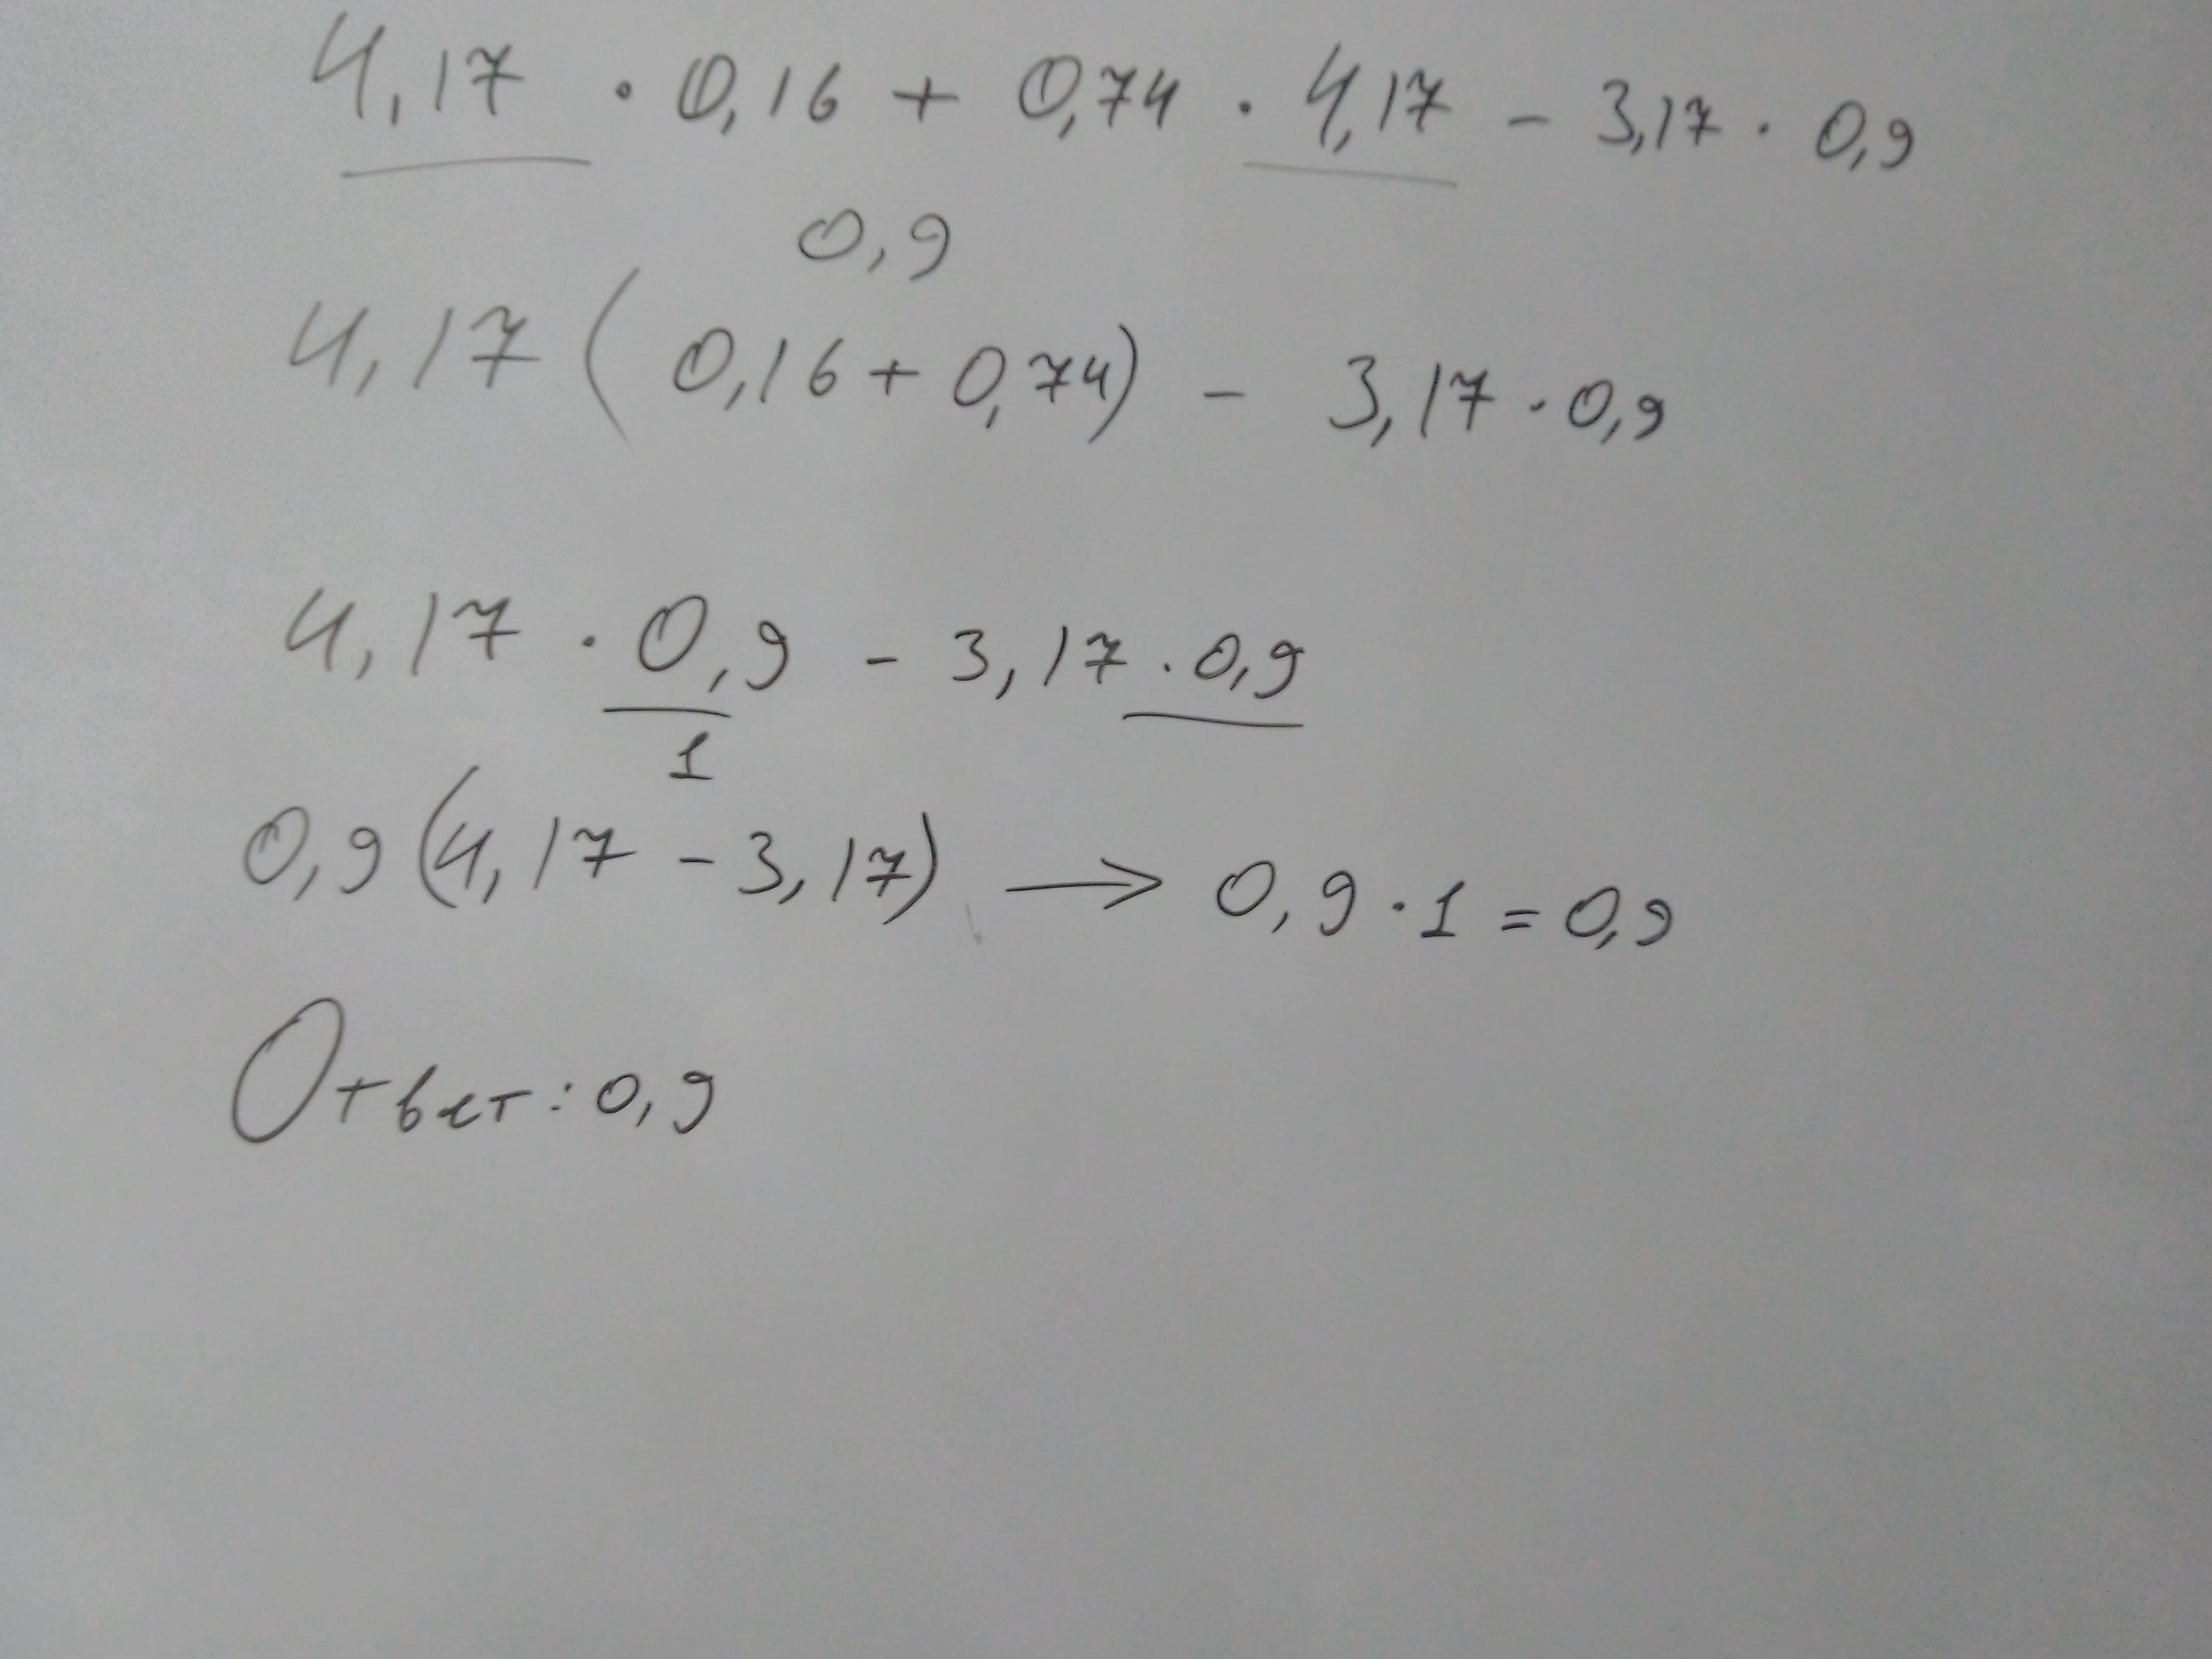 4,17 · 0,16 + 0,74 · 4,17 - 3,17 · 0,9
0,9
4,17 ( 0,16 + 0,74) - 3,17 · 0,9
4,17 · 0,9 - 3,17 · 0,9
1
0,9 (4,17 - 3,17) → 0,9 · 1 = 0,9
Ответ: 0,9